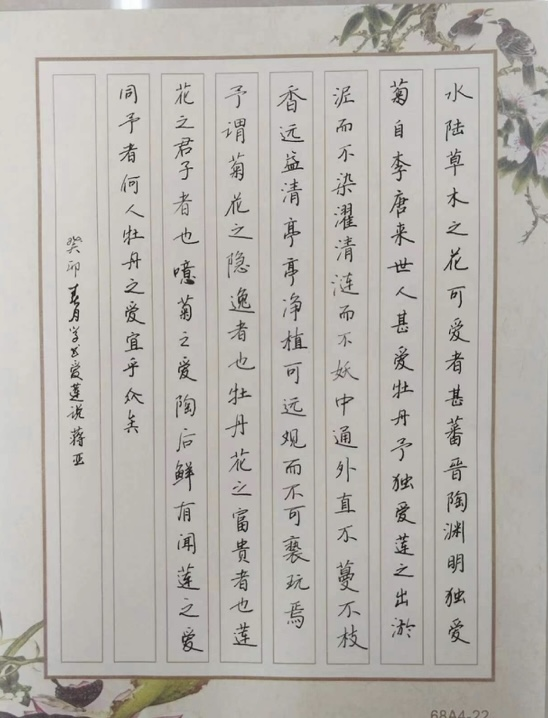 水陆草木之花可爱者甚蕃晋陶渊明独爱
菊自李唐来世人甚爱牡丹予独爱莲之出淤
泥而不染濯清涟而不妖中通外直不蔓不枝
香远益清亭亭净植可远观而不可亵玩焉
予谓菊花之隐逸者也牡丹花之富贵者也莲
花之君子者也噫菊之爱陶后鲜有闻莲之爱
同予者何人牡丹之爱宜乎众矣
癸卯春月学书爱莲说蒋亚
68A4-22